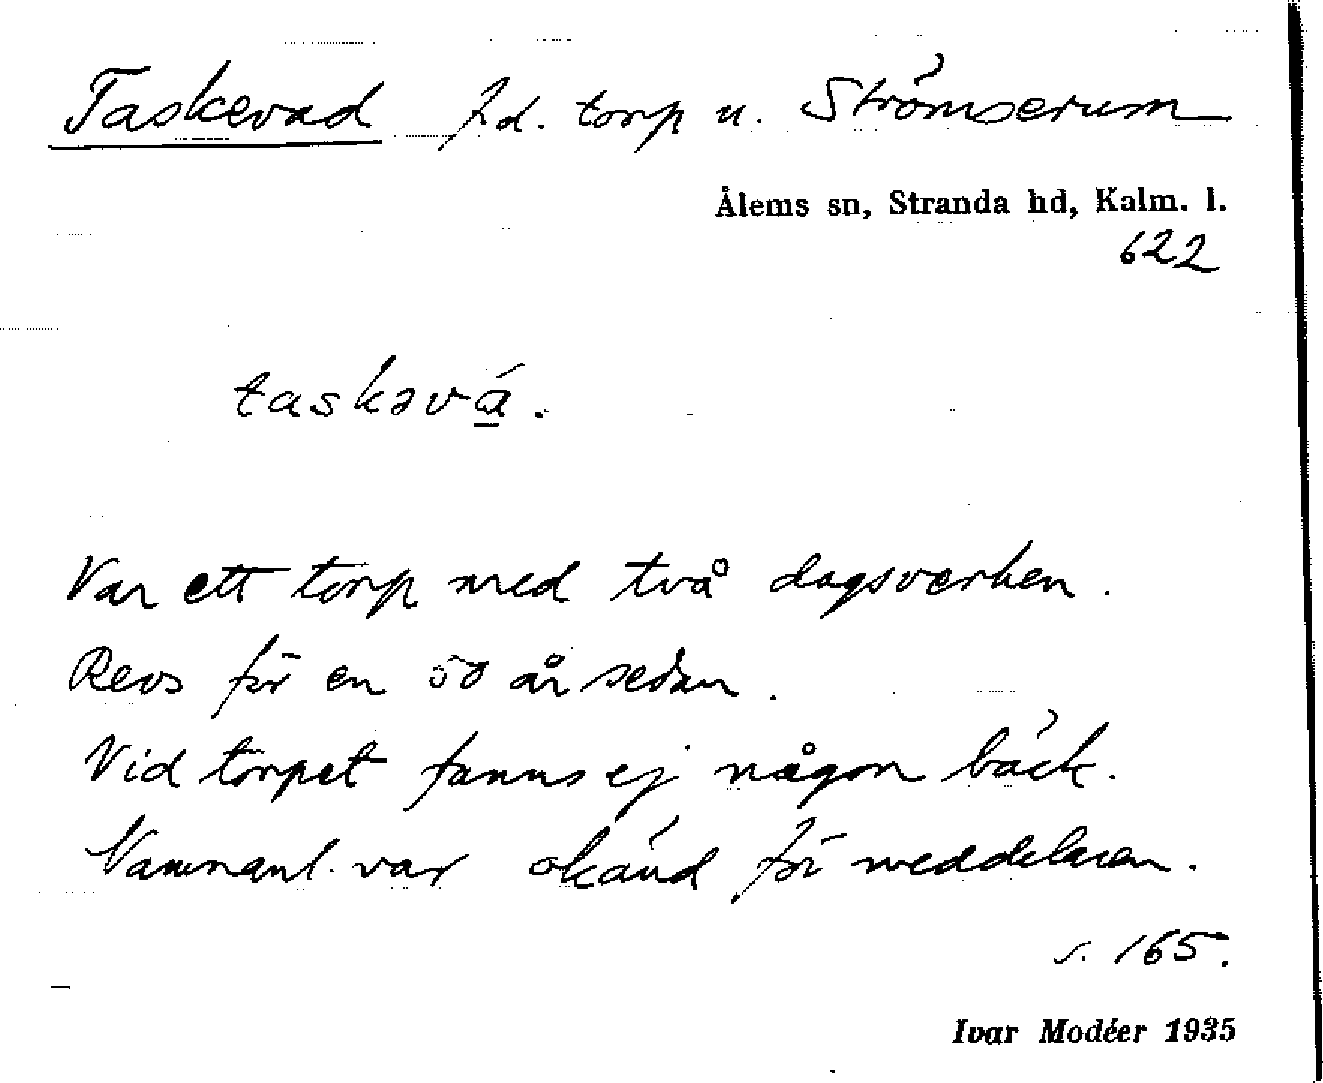 Taskevad f.d. torp u. Strömserum
Ålems sn, Stranda hd, Kalm. l.
622
taskəvá.
Var ett torp med två dagsverken.
Revs för en 50 år sedan.
Vid torpet fanns ej någon bäck.
Namnanl. var okänd för meddelaren.
s. 165.
Ivar Modéer 1935